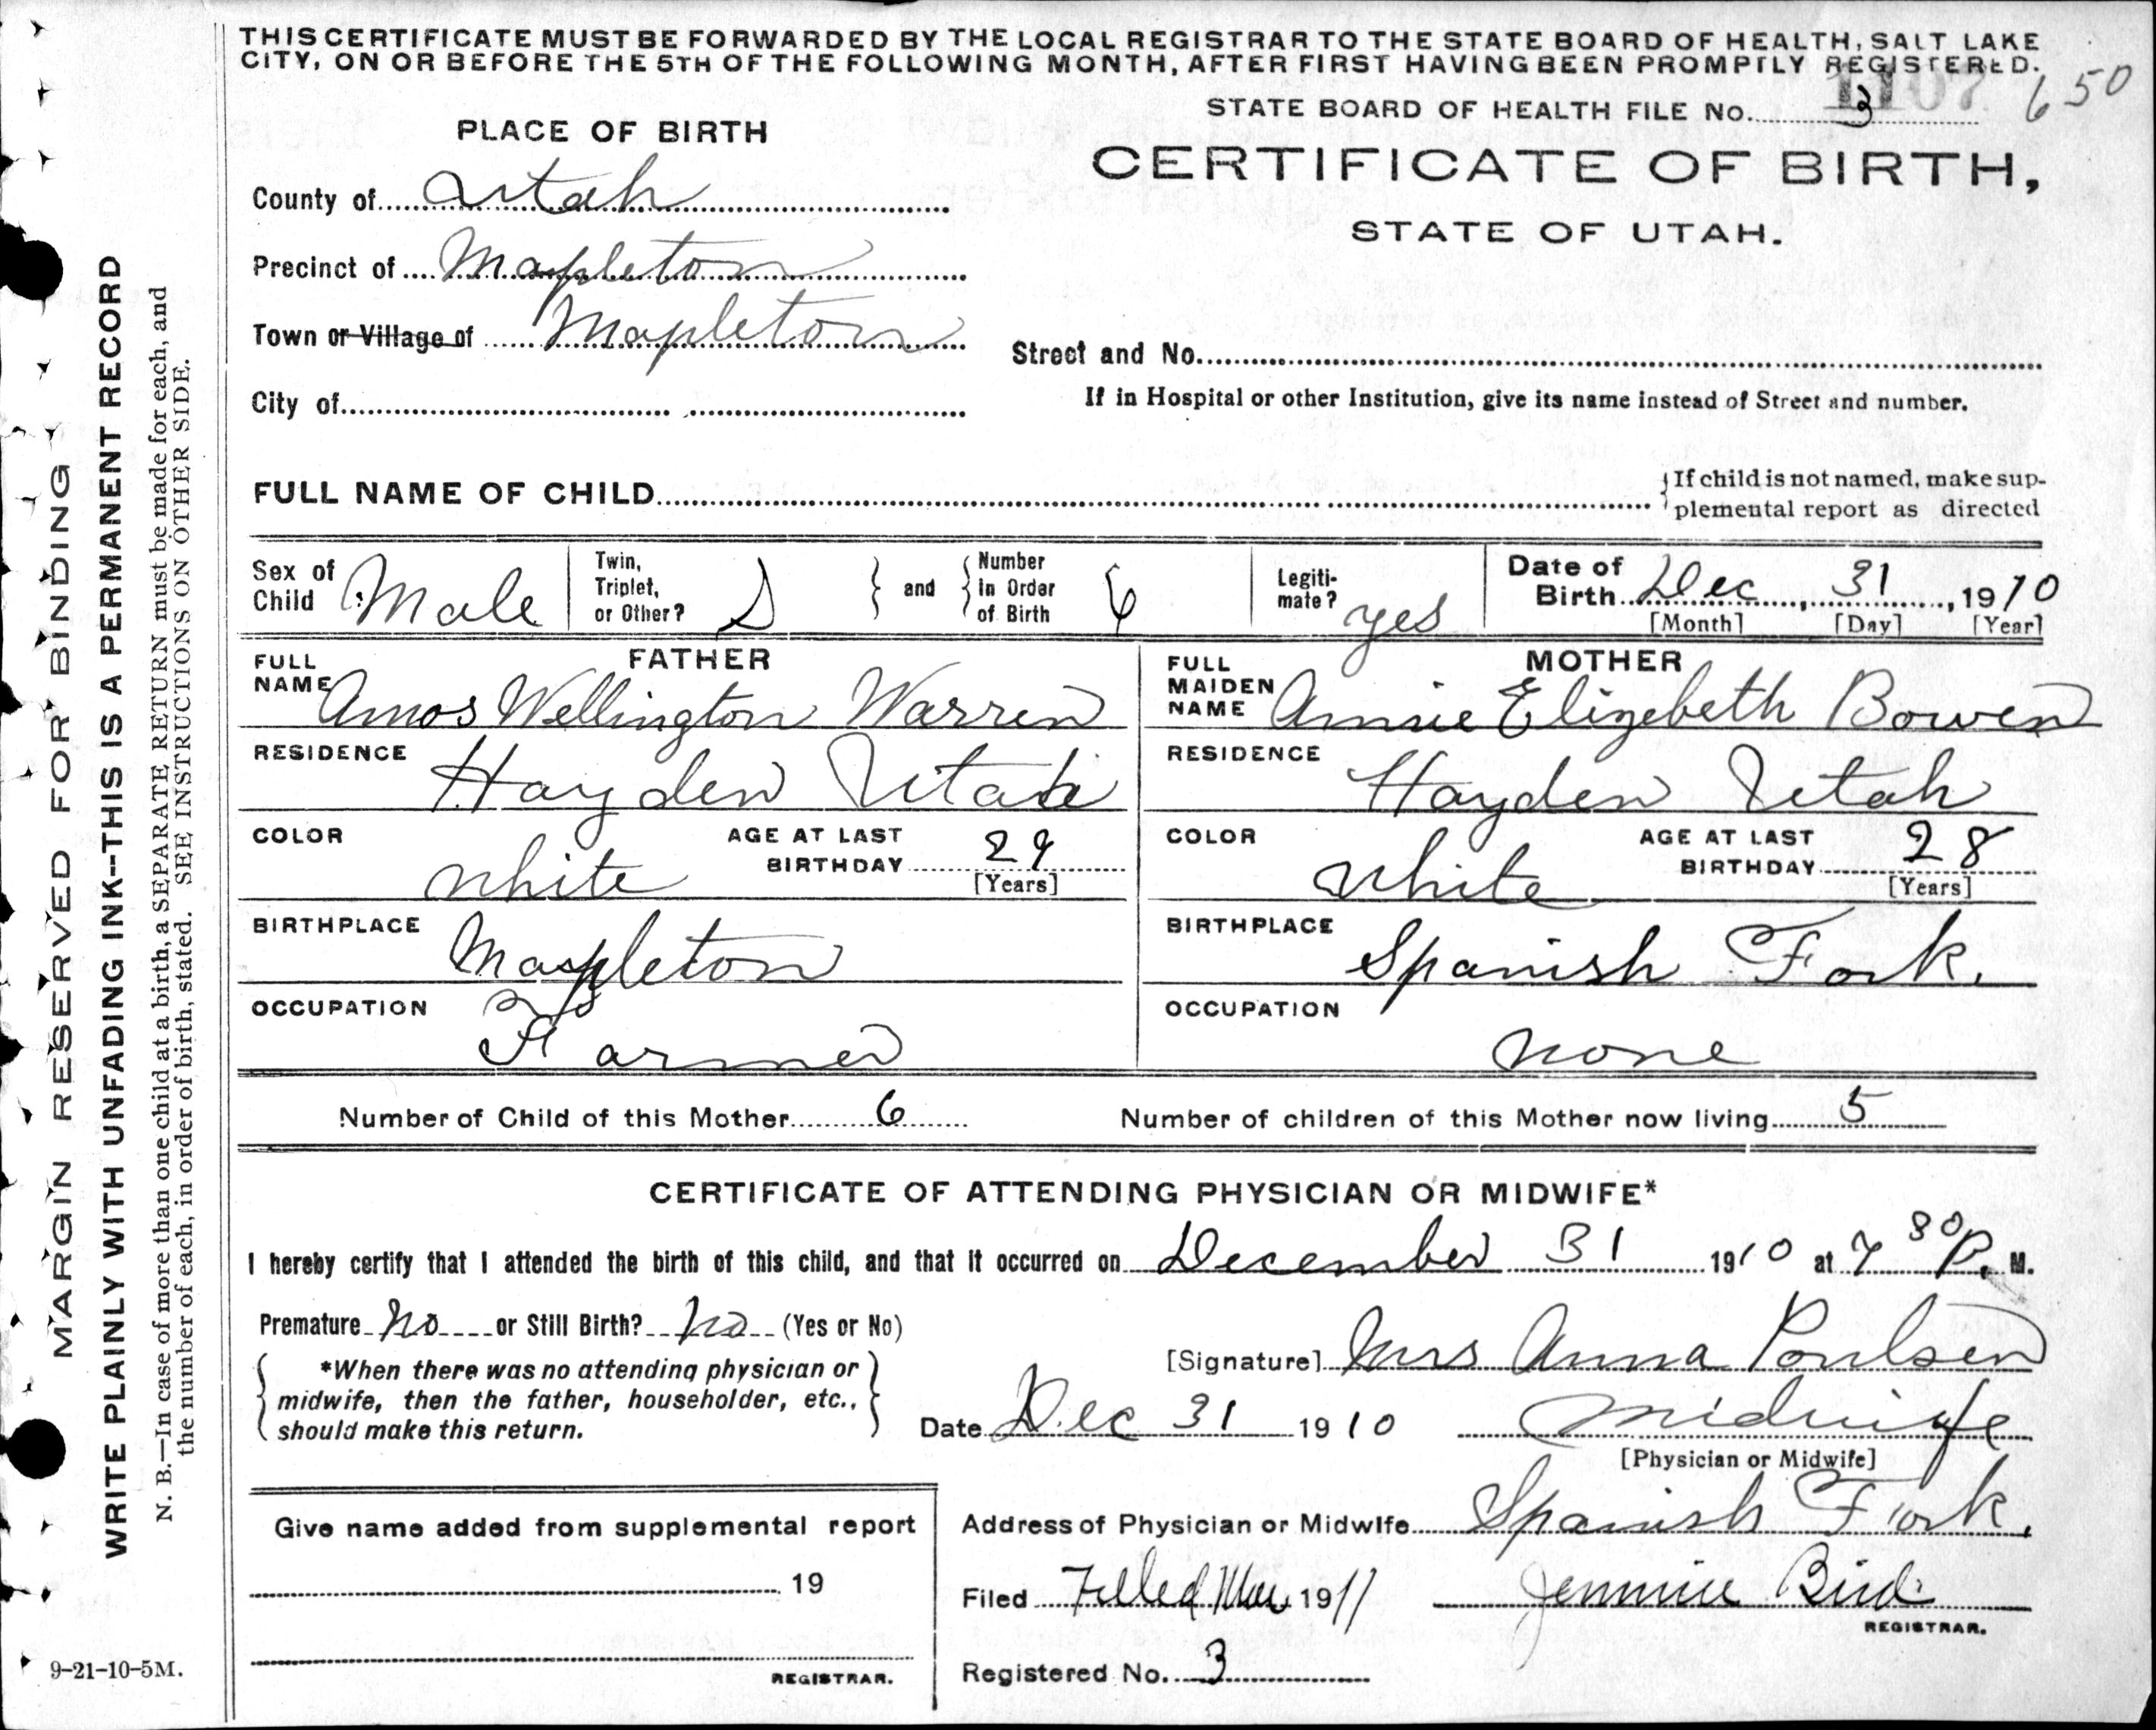 THIS CERTIFICATE MUST BE FORWARDED BY THE LOCAL REGISTRAR TO THE STATE BOARD OF HEALTH, SALT LAKE
CITY, ON OR BEFORE THE 5TH OF THE FOLLOWING MONTH, AFTER FIRST HAVING BEEN PROMPTLY REGISTERED.
650
1107
STATE BOARD OF HEALTH FILE No. 3
PLACE OF BIRTH
CERTIFICATE OF BIRTH,
STATE OF UTAH.
County of Utah
Precinct of Mapleton
Town or Village of Mapleton
Street and No.
City of
If in Hospital or other Institution, give its name instead of Street and number.
FULL NAME OF CHILD
If child is not named, make sup-
plemental report as directed
Sex of Child Male
Twin, Triplet, or Other? S
and Number in Order of Birth 6
Legiti-mate? yes
Date of Birth Dec, 31, 1910
[Month] [Day] [Year]
FATHER
FULL NAME Amos Wellington Warren
RESIDENCE Hayden Utah
COLOR white
AGE AT LAST BIRTHDAY 29
[Years]
BIRTHPLACE Mapleton
OCCUPATION Farmer
MOTHER
FULL MAIDEN NAME Annie Elizebeth Bowen
RESIDENCE Hayden Utah
COLOR white
AGE AT LAST BIRTHDAY 28
[Years]
BIRTHPLACE Spanish Fork.
OCCUPATION none
Number of Child of this Mother 6
Number of children of this Mother now living 5
CERTIFICATE OF ATTENDING PHYSICIAN OR MIDWIFE*
I hereby certify that I attended the birth of this child, and that it occurred on December 31 1910 at 7 30 P. M.
Premature no or Still Birth? no (Yes or No)
*When there was no attending physician or
midwife, then the father, householder, etc.,
should make this return.
[Signature] Mrs Anna Poulsen
Date Dec 31 1910
midwife
[Physician or Midwife]
Give name added from supplemental report
19
REGISTRAR.
Address of Physician or Midwife Spanish Fork.
Filed Filled Mar 1911
Jennnie Bird
REGISTRAR.
Registered No. 3
MARGIN RESERVED FOR BINDING
WRITE PLAINLY WITH UNFADING INK--THIS IS A PERMANENT RECORD
N. B.—In case of more than one child at a birth, a SEPARATE RETURN must be made for each, and
the number of each, in order of birth, stated. SEE INSTRUCTIONS ON OTHER SIDE.
9-21-10-5M.